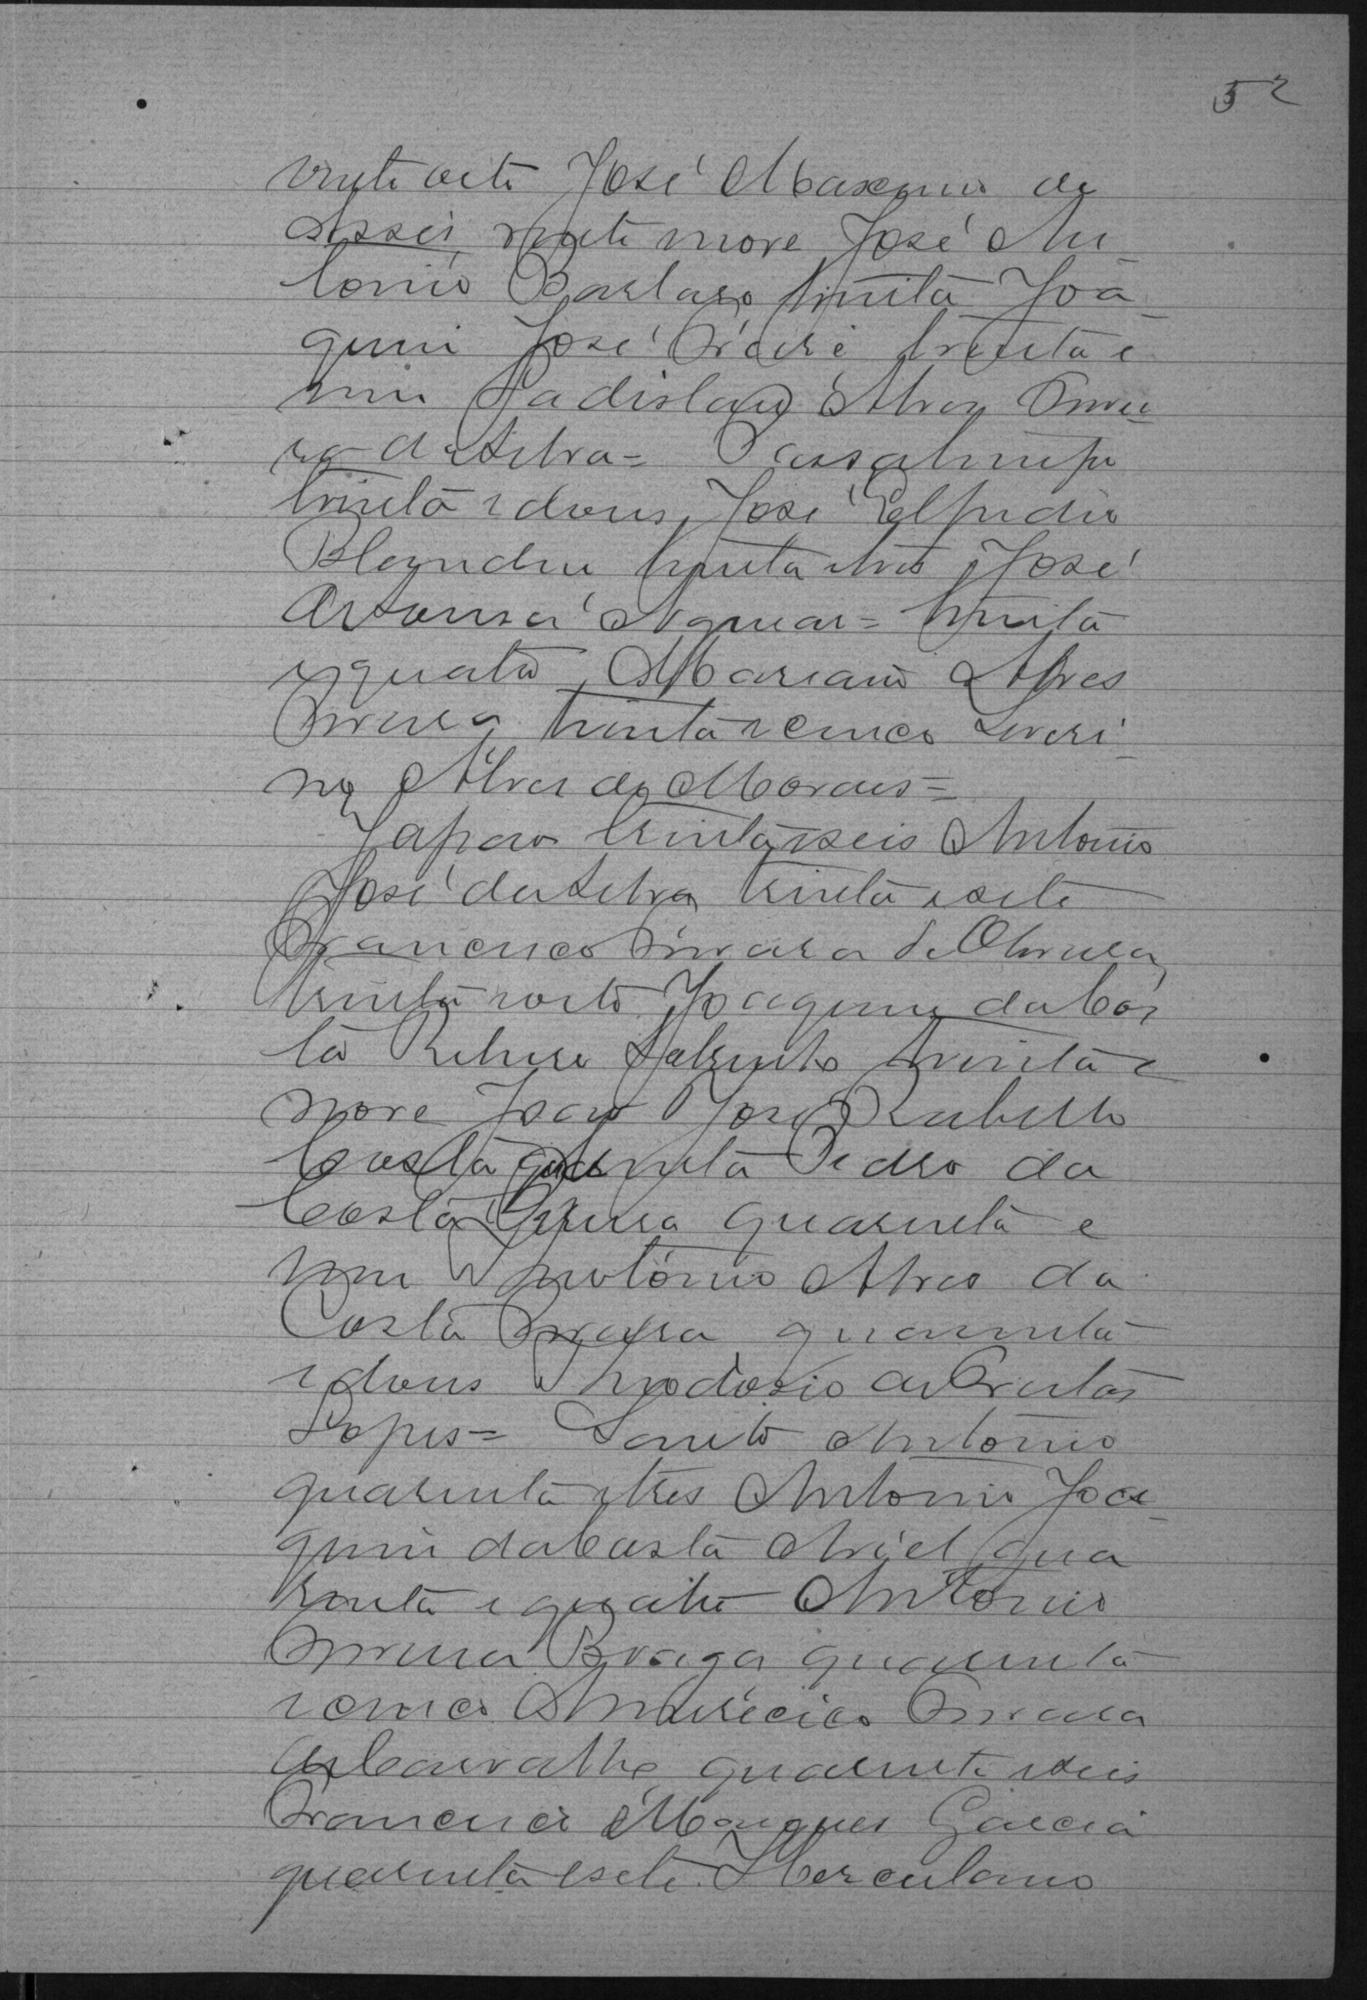 52
vinte oito José Maximo de
Assis vinte nove José An
tonio Barbaso trinta Joa
quim José Freire trinta e
um Ladislau Alves Pereie
ra da Silva =
trinta e dous, José Elpidio
trinta e tres José
Aguiar = trinta
e quatro, Mariano Alves
Pereira trinta e cinco Severi
no Alves de Moraes =
Japão trinta e seis Antonio
José da Silva trinta e sete
Francisco Pereira de Oliveira
trinta e oito Joaquim da Cos
ta trinta e
nove João José Rabello
Costa quarenta Pedro da
Costa quarenta e
um Antonio Alves da
Costa Pereira quarenta
e dous Theodosio de Freitas
Lopes = Santo Antonio
quarenta e tres Antonio Joa
quim da Costa quá
renta e quatro Antonio
Pereira Braga quarenta
e cinco Americico Pereira
de Carvalho quarenta e seis
Francisco Marques Garcia
quarenta e sete Herculano